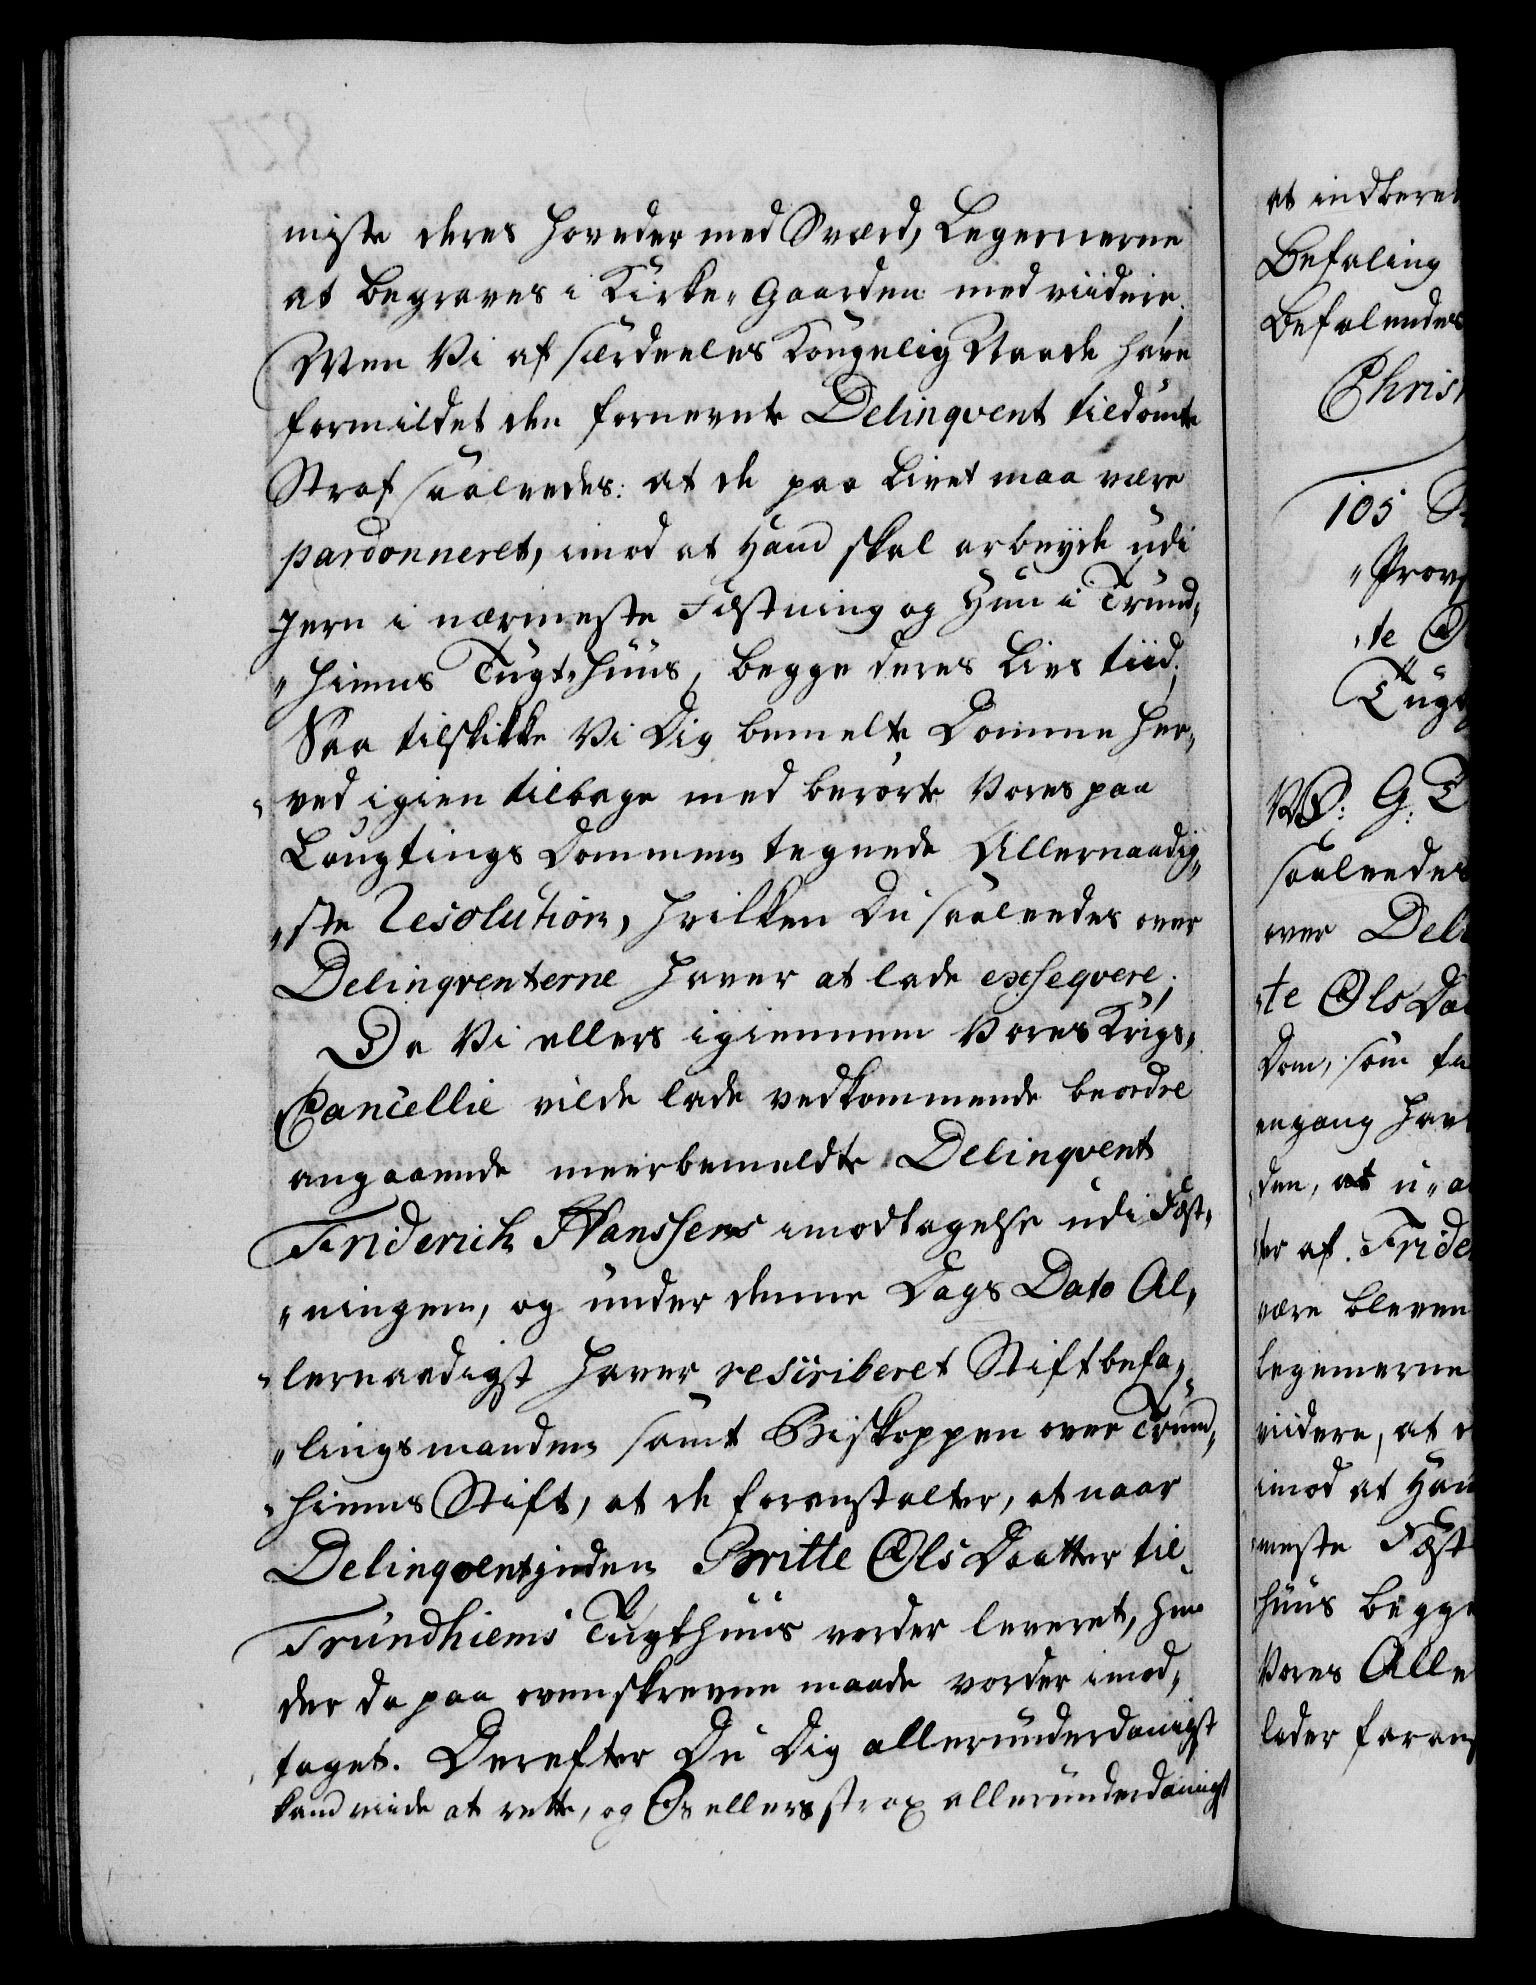 miste deres Hoveder med Sværd, Legemerne
at begraves i Kirke-Gaarden med viidere;
Men Vi af særdeeles Kongelig Naade have
formildet den fornevnte Delinqvent tildømte
Straf saaleedes: at de paa Livet maa være
pardonneret, imod at Hand skal arbeyde udi
Jern i nærmeste Fæstning og Hun i Trund-
"hiems Tugt-Huus, begge deres Livs tiid;
Saa tilskikke Vi Dig bemelte Domme her-
"ved igien tilbage med berørte Vores paa
Laugtings Dommen tegnede Allernaadig-
"ste Resolution, hvilken Du saaleedes over
Delinqventerne haver at lade exseqvere;
Da Vi ellers igiennem Vores Krigs-
Cancellie vilde lade vedkommende beordre
angaaende meerbemeldte Delinqvent
Friderich Hanssens imodtagelse udi Fæst-
"ningen, og under denne Dags Dato Al-
"lernaadigst haver rescriberet Stiftbefa-
"lingsmanden samt Biskoppen over Trund-
"hiems Stift, at de foranstalter, at naar
Delinqventinden Britte Ols Daatter til
Trundhiems Tugthuus vorder leveret, hun
der da paa ovenskrevne maade vorder imod-
taget. Derefter Du Dig allerunderdanigst
kand viide at rette, og Os ellers strax allerunderdanigst
at indberet
Befaling
Befalendes
Christ
105
"Prov
"te O
Tugt
saaleedes
over Deli
"te Ols Daa
Dom, som fa
engang hav
"den, at u-a
"ter af Frider
være bleven
Legemerne
viidere, at d
imod at Han
"meste Fæst
huus begge
Vores Aller
lader forans